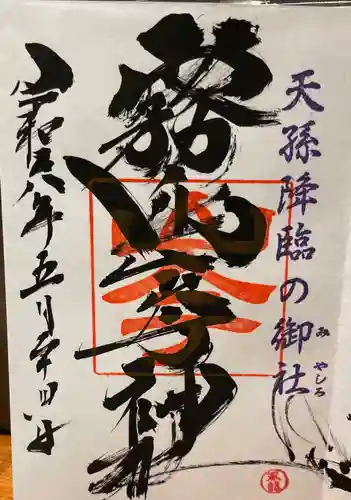 天孫降臨の御社
みやしろ
霧島岑神社
令和
年五月
四日